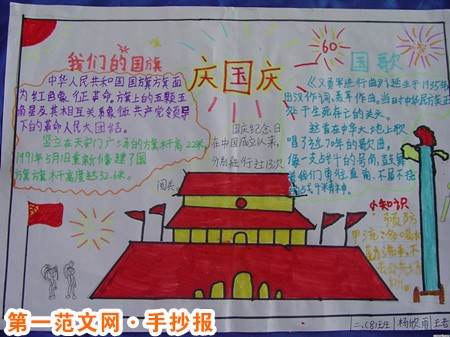 我们的国旗
中华人民共和国国旗旗面
为红色象征革命。旗上的五颗五
角星及其相互关系象征共产党领导
下的革命人民大团结。
竖立在天安门广场的旗杆高22米
1991年5月1日重新修建了国
旗旗杆高度越32.6米。
庆国庆
国庆纪念日
在中国成立以来,
分别起行过13次
阅兵。
60
国歌
《义勇军进行曲》诞生于1935年
田汉作词,聂耳作曲。当时中华民族正
处于生死存亡的关头。
这首在中华大地上歌
唱了过70年的歌曲,
像一支战斗的号角,鼓舞
着他们勇往直前、不屈不挠
小知识
预防
第一范文网·手抄报
二、(8)班
杨欣雨